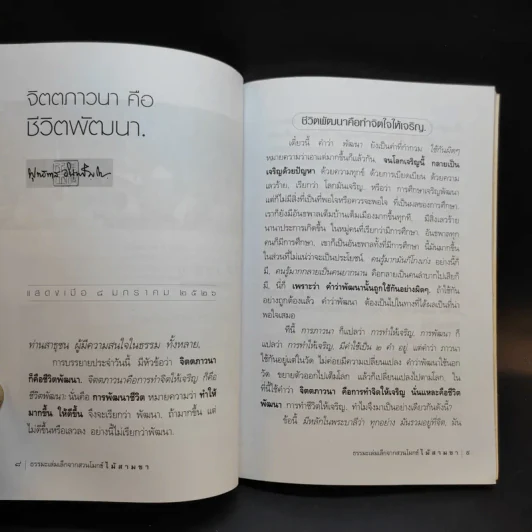 จิตตภาวนา คือ
ชีวิตพัฒนา.
พุทธทาส อินทปัญโญ
แสดงเมื่อ ๘ มกราคม ๒๕๒๖
ท่านสาธุชน ผู้มีความสนใจในธรรม ทั้งหลาย,
การบรรยายประจำวันนี้ มีหัวข้อว่า จิตตภาวนา
ก็คือชีวิตพัฒนา. จิตตภาวนาคือการทำจิตให้เจริญ ก็คือ
ชีวิตพัฒนา นั่นคือ การพัฒนาชีวิต หมายความว่า ทำให้
มากขึ้น ให้ดีขึ้น จึงจะเรียกว่า พัฒนา. ถ้ามากขึ้น แต่
ไม่ดีขึ้นหรือเลวลง อย่างนี้ไม่เรียกว่าพัฒนา.
๘ | ธรรมะเล่มเล็กจากสวนโมกข์ ไม้สามขา
ชีวิตพัฒนาคือทำจิตใจให้เจริญ.
เดี๋ยวนี้ คำว่า พัฒนา ยังเป็นคำที่กำกวม ใช้กันผิดๆ
หมายความว่าเอาแต่มากขึ้นก็แล้วกัน, จนโลกเจริญนี้ กลายเป็น
เจริญด้วยปัญหา ด้วยความทุกข์ ด้วยการเบียดเบียน ด้วยความ
เลวร้าย, เรียกว่า โลกมันเจริญ. หรือว่า การศึกษาเจริญพัฒนา
แต่ก็ไม่มีสิ่งที่เป็นที่พอใจหรือควรจะพอใจ ที่เป็นผลของการศึกษา.
เราก็ยังมีอันธพาลเต็มบ้านเต็มเมืองมากขึ้นทุกที, มีสิ่งเลวร้าย
นานาประการเกิดขึ้น ในหมู่คนที่เรียกว่ามีการศึกษา. อันธพาลทุก
คนก็มีการศึกษา, เขาก็เป็นอันธพาลทั้งที่มีการศึกษา นี้มันมากขึ้น
ในส่วนที่ไม่แน่ว่าจะเป็นประโยชน์. คนรู้มากมันก็โกงเก่ง อย่างนี้ก็
มี, คนรู้มากกลายเป็นคนยากนาน คือกลายเป็นคนลำบากไปเสียก็
มี. นี่ก็ เพราะว่า คำว่าพัฒนานั้นถูกใช้กันอย่างผิดๆ. ถ้าใช้กัน
อย่างถูกต้องแล้ว คำว่าพัฒนา ต้องเป็นไปในทางที่ได้ผลเป็นที่น่า
พอใจเสมอ
ทีนี้ การภาวนา ก็แปลว่า การทำให้เจริญ, การพัฒนา ก็
แปลว่า การทำให้เจริญ, มีคำใช้เป็น ๒ คำ อยู่ แต่คำว่า ภาวนา
ใช้กันอยู่แต่ในวัด ไม่ค่อยมีความเปลี่ยนแปลง คำว่าพัฒนาใช้นอก
วัด, ขยายตัวออกไปเต็มโลก แล้วก็เปลี่ยนแปลงไปตามโลก. ใน
ที่นี้ใช้คำว่า จิตตภาวนา คือการทำจิตให้เจริญ นั่นแหละคือชีวิต
พัฒนา การทำชีวิตให้เจริญ. ทำไมจึงมาเป็นอย่างเดียวกันดังนี้?
ข้อนี้ มีหลักในพระบาลีว่า ทุกอย่าง มันรวมอยู่ที่จิต, มัน
ธรรมะเล่มเล็กจากสวนโมกข์ ไม้สามขา | ๙